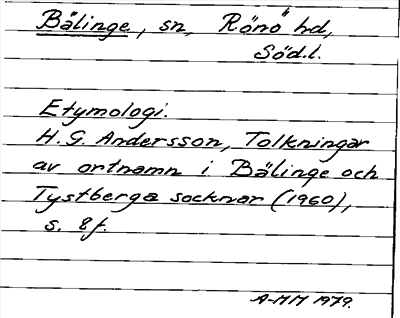 Bälinge, sn, Rönö hd,
Söd.l.
Etymologi.
H.G. Andersson, Tolkningar
av ortnamn i Bälinge och
Tystberga socknar (1960),
s. 8f.
A-MM 1979.